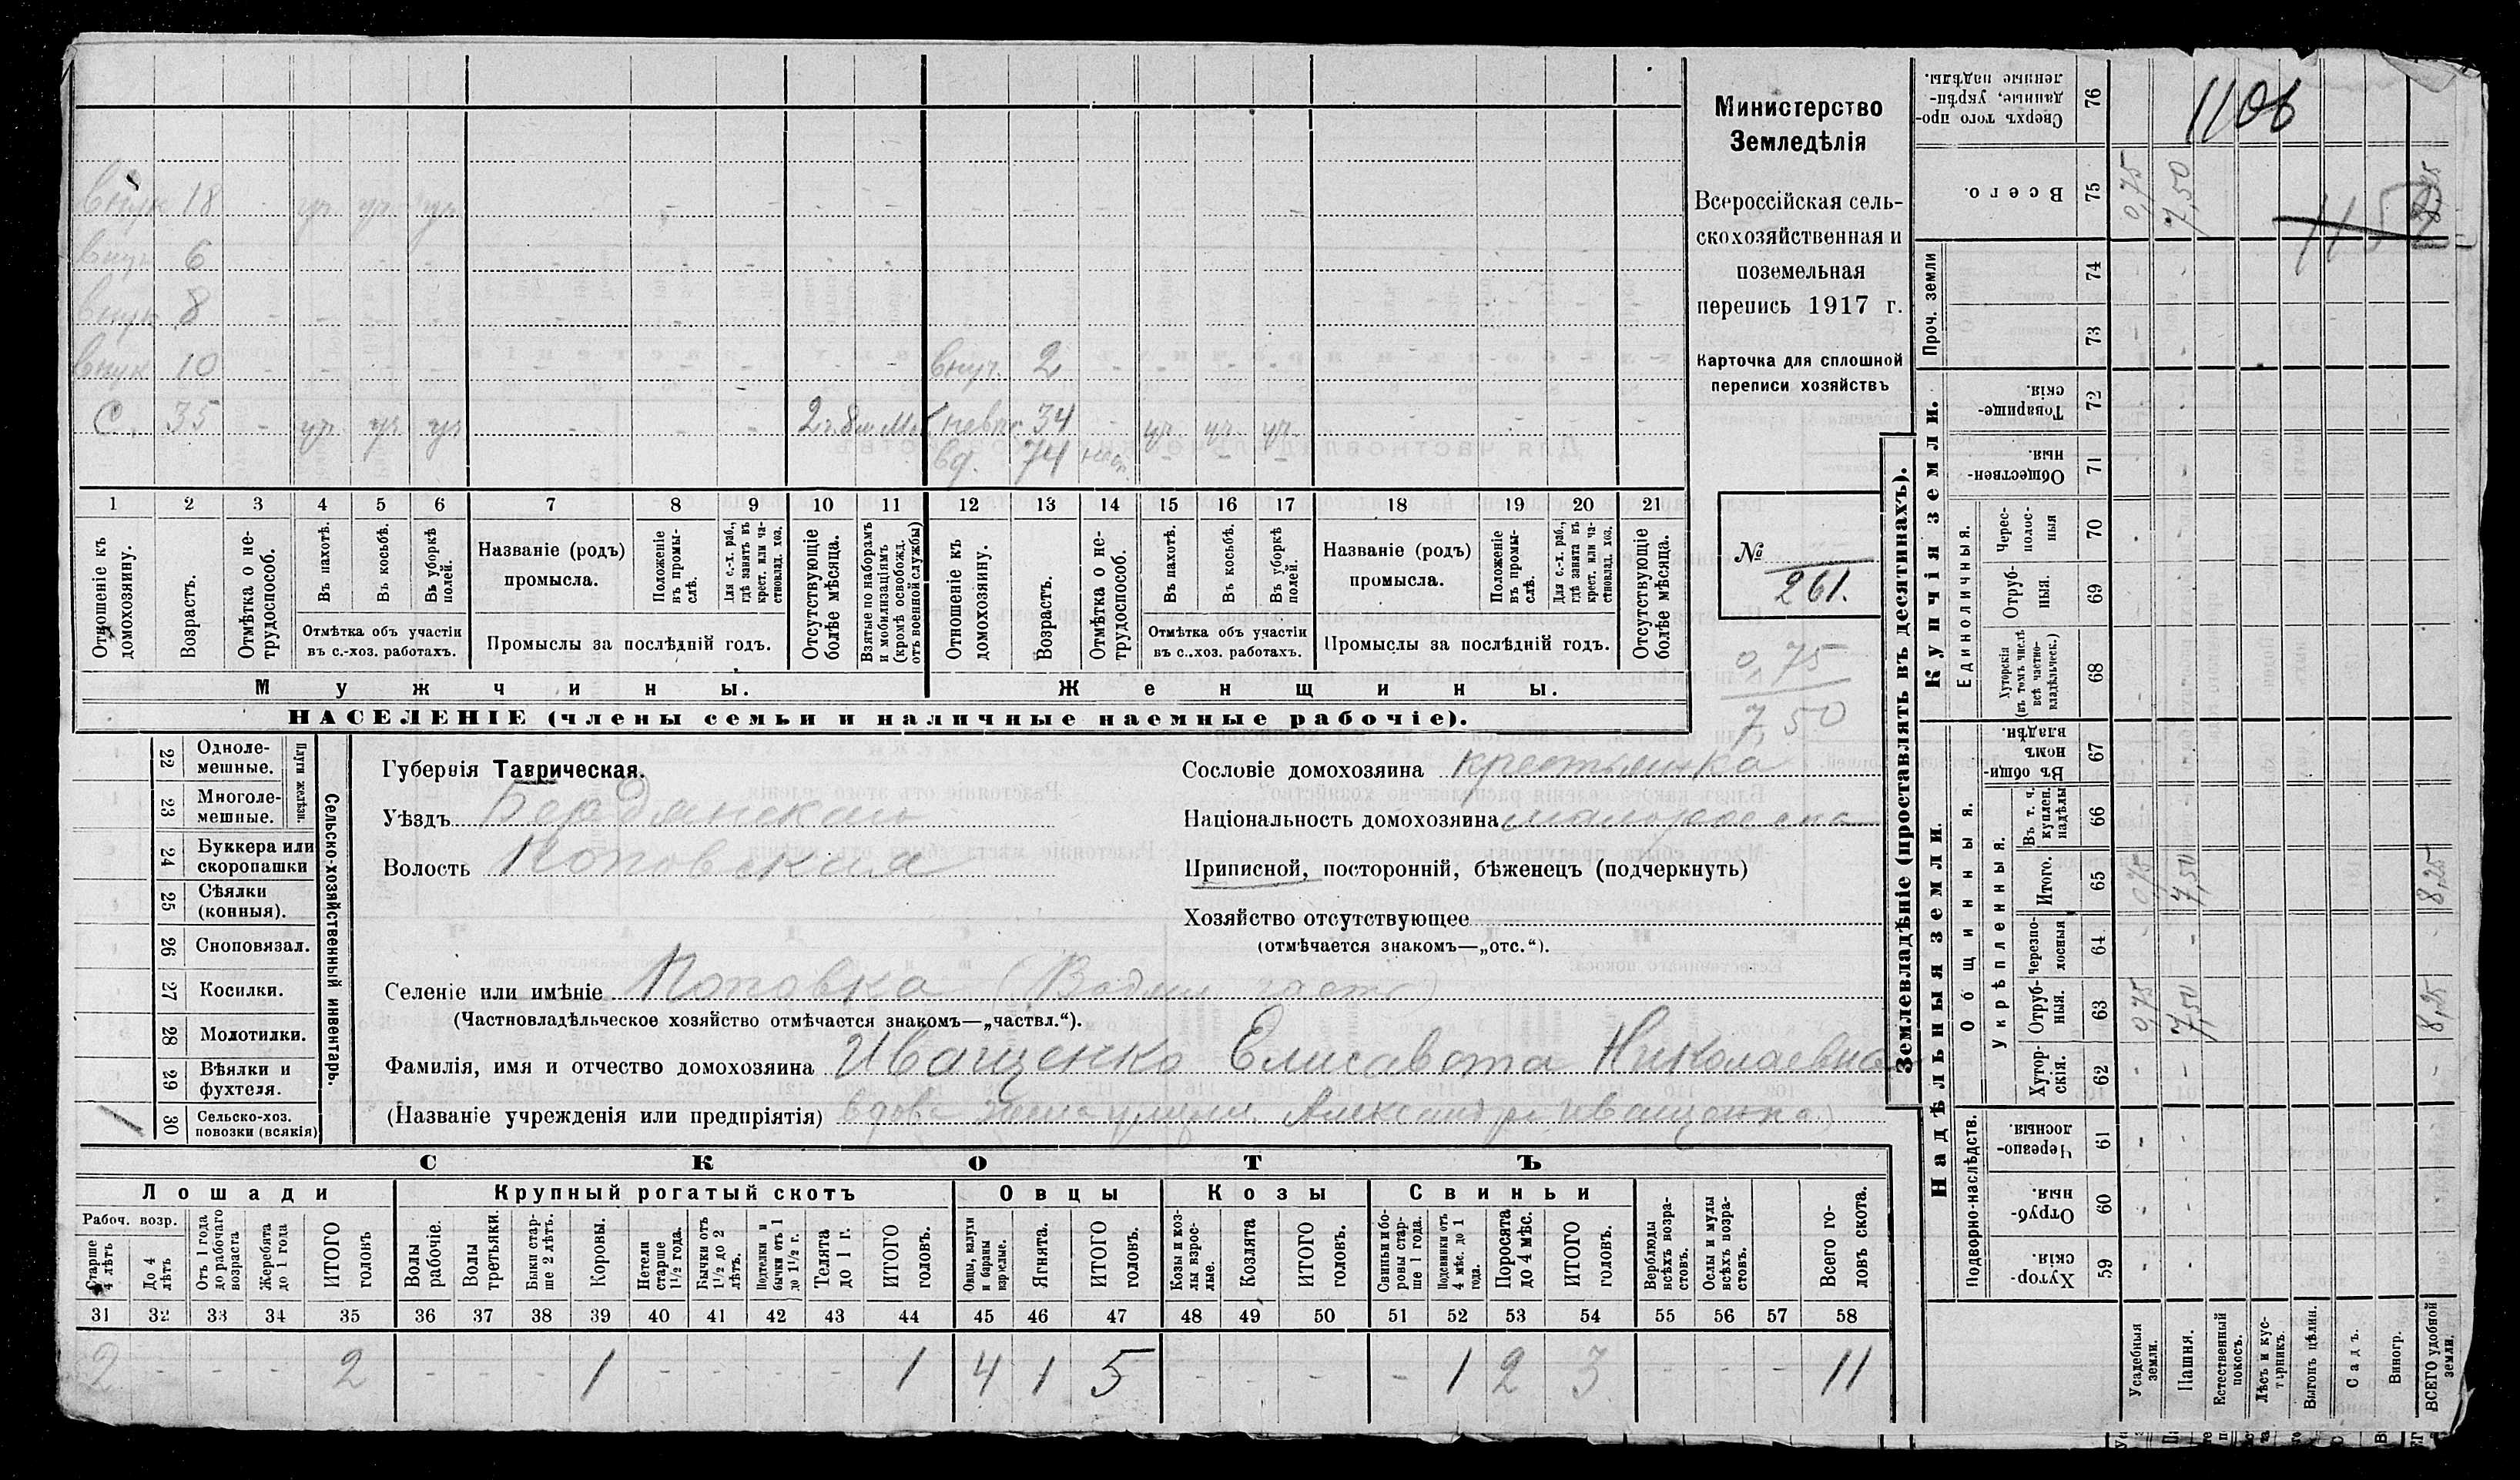 внук 18 - уч. уч. уч. - - - - -
внук 6 - - - - - - - - -
внук 8 - - - - - - - -
внук 10 - - - - - - - - - внуч. 2 - - - -
С. 35 - уч. уч. уч. - - - 34 - уч. уч. уч. - - - -
вд. 74 - - -
1 2 3 4 5 6 7 8 9 10 11 12 13 14 15 16 17 18 19 20 21
Отношеніе къ домохозяину.
Возрастъ.
Отмѣтка о не-трудоспособ.
Въ пахотѣ.
Въ косьбѣ.
Въ уборкѣ полей.
Отмѣтка объ участіи въ с.-хоз. работахъ.
Названіе (родъ) промысла.
Положеніе въ промы-слѣ.
Для с.-х. раб., гдѣ занятъ въ крест. или ча-стновлад. хоз.
Промыслы за послѣдній годъ.
Отсутствующіе болѣе мѣсяца.
Взятые по наборамъ и мобилизаціямъ (кромѣ освобожд. отъ военной службы)
Отношеніе къ домохозяину.
Возрастъ.
Отмѣтка о не-трудоспособ.
Въ пахотѣ.
Въ косьбѣ.
Въ уборкѣ полей.
Отмѣтка объ участіи въ с.-хоз. работахъ.
Названіе (родъ) промысла.
Положеніе въ промы-слѣ.
Для с.-х. раб., гдѣ занята въ крест. или ча-стновлад. хоз.
Промыслы за послѣдній годъ.
Отсутствующіе болѣе мѣсяца.
Мужчины.
Женщины.
НАСЕЛЕНІЕ (члены семьи и наличные наемные рабочіе).
Министерство
Земледѣлія
Всероссійская сель-
скохозяйственная и
поземельная
перепись 1917 г.
Карточка для сплошной
переписи хозяйствъ
№
261.
0,75
7,50
22 Одноле-мешные.
23 Многоле-мешные.
Плуги желѣзн.
24 Буккера или скоропашки
25 Сѣялки (конныя).
26 Сноповязал.
27 Косилки.
28 Молотилки.
29 Вѣялки и фухтеля.
1 30 Сельско-хоз. повозки (всякія)
Сельско-хозяйственный инвентарь.
Губернія Таврическая.
Уѣздъ Бердянскій
Волость Поповская
Сословіе домохозяина крестьянка
Національность домохозяина малоросска
Приписной, посторонній, бѣженецъ (подчеркнуть)
Хозяйство отсутствующее
(отмѣчается знакомъ—„отс.“).
Селеніе или имѣніе Поповка
(Частновладѣльческое хозяйство отмѣчается знакомъ—„частвл.“).
Фамилія, имя и отчество домохозяина Иващенко Елисавета Николаевна
(Названіе учрежденія или предпріятія) вдова Александра Иващенка)
СКОТЪ
Лошади
Крупный рогатый скотъ
Овцы
Козы
Свиньи
Рабоч. возр.
Старше 4 лѣтъ
До 4 лѣтъ
Отъ 1 года до рабочаго возраста
Жеребята до 1 года
ИТОГО головъ
Волы рабочіе.
Волы третьяки.
Быки стар-ше 2 лѣтъ.
Коровы.
Нетели старше 1½ года.
Бычки отъ 1½ до 2 лѣтъ.
Подтелки и бычки отъ 1 до 1½ г.
Телята до 1 г.
ИТОГО головъ.
Овцы, валухи и бараны взрослые.
Ягнята.
ИТОГО головъ.
Козы и коз-лы взрос-лые.
Козлята
ИТОГО головъ.
Свиньи и бо-ровы стар-ше 1 года.
Подсвинки отъ 4 мѣс. до 1 года.
Поросята до 4 мѣс.
ИТОГО головъ.
Верблюды всѣхъ возра-стовъ.
Ослы и мулы всѣхъ возра-стовъ.
Всего го-ловъ скота.
31 32 33 34 35 36 37 38 39 40 41 42 43 44 45 46 47 48 49 50 51 52 53 54 55 56 57 58
2 - - - 2 - - - 1 - - - - 1 4 1 5 - - - - 1 2 3 - - - 11
Землевладѣніе (проставлять въ десятинахъ).
Надѣльныя земли.
Купчія земли.
Проч. земли
Подворно-наслѣдств.
Общинныя.
Укрѣпленныя.
Единоличныя.
Сверхъ того про-данные, укрѣп-ленные надѣлы. 76
1106
Всего. 75 0,75 7,50 8,25
74
73
Товарище-скія. 72
Обществен-ныя. 71
Черес-полос-ныя 70
Отруб-ныя. 69
Хуторскія (въ томъ числѣ всѣ частно-владѣльческ.) 68
Въ общин-номъ владѣн. 67
Въ т. ч. куплен. надѣлы 66
Итого. 65 0,75 7,50 8,25
черезпо-лосныя 64
Отруб-ныя. 63 0,75 7,50 8,25
Хутор-скія. 62
Черезпо-лосныя. 61
Отруб-ныя. 60
Хутор-скія. 59
Усадебныя земли.
Пашня.
Естественный покосъ.
Лѣсъ и кус-тарникъ.
Выгонъ цѣлин.
Садъ.
Виногр.
ВСЕГО удобной земли.